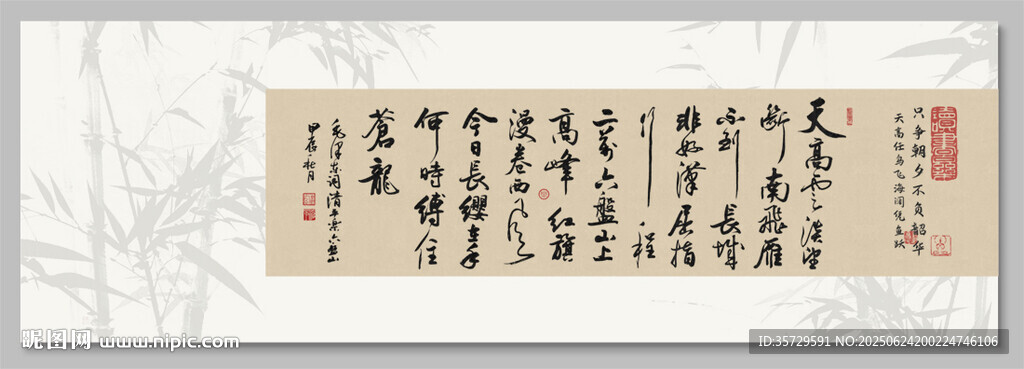 只争朝夕不负韶华
天高任鸟飞海阔凭鱼跃
天高雲淡望
斷南飛雁
不到長城
非好漢屈指
行程
二萬六盤山上
高峰紅旗
漫卷西風
今日長纓在手
何時縛住
蒼龍
毛澤东词清平乐六盤山
甲辰月
昵图网 www.nipic.com
ID:35729591 NO:20250624200224746106